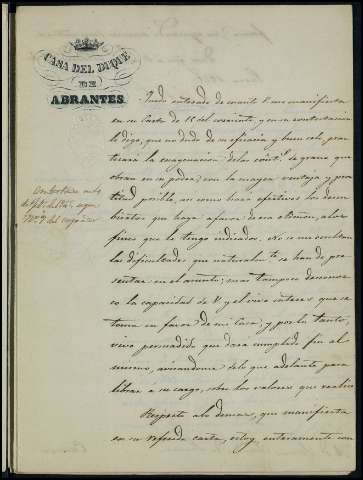 CASA DEL DUQUE
DE
ABRANTES.
Quedo enterado de cuanto V. me manifiesta
en su Carta de 15 del corriente, y en su contestacion
le digo, que no dudo de su eficacia y buen celo prac
ticará la enagenacion de los granos que
obran en su poder, con la mayor ventaja y pron
titud posible, asi como hará efectivos los descu
biertos que haya á favor de esa, á los
fines que le tengo indicados. No se me ocultan
las dificultades que naturalmte. se han de pre
sentar en el asunto; mas tampoco desconoz
co la capacidad de V. y el vivo interes que se
toma en favor de mi Casa; y, por lo tanto,
vivo persuadido que dará cumplido fin al
mismo, avisandome de lo que adelante para
librar á su cargo, sobre los valores que realice
Respecto á lo demas, que manifiesta
en su referida carta, estoy enteramente con